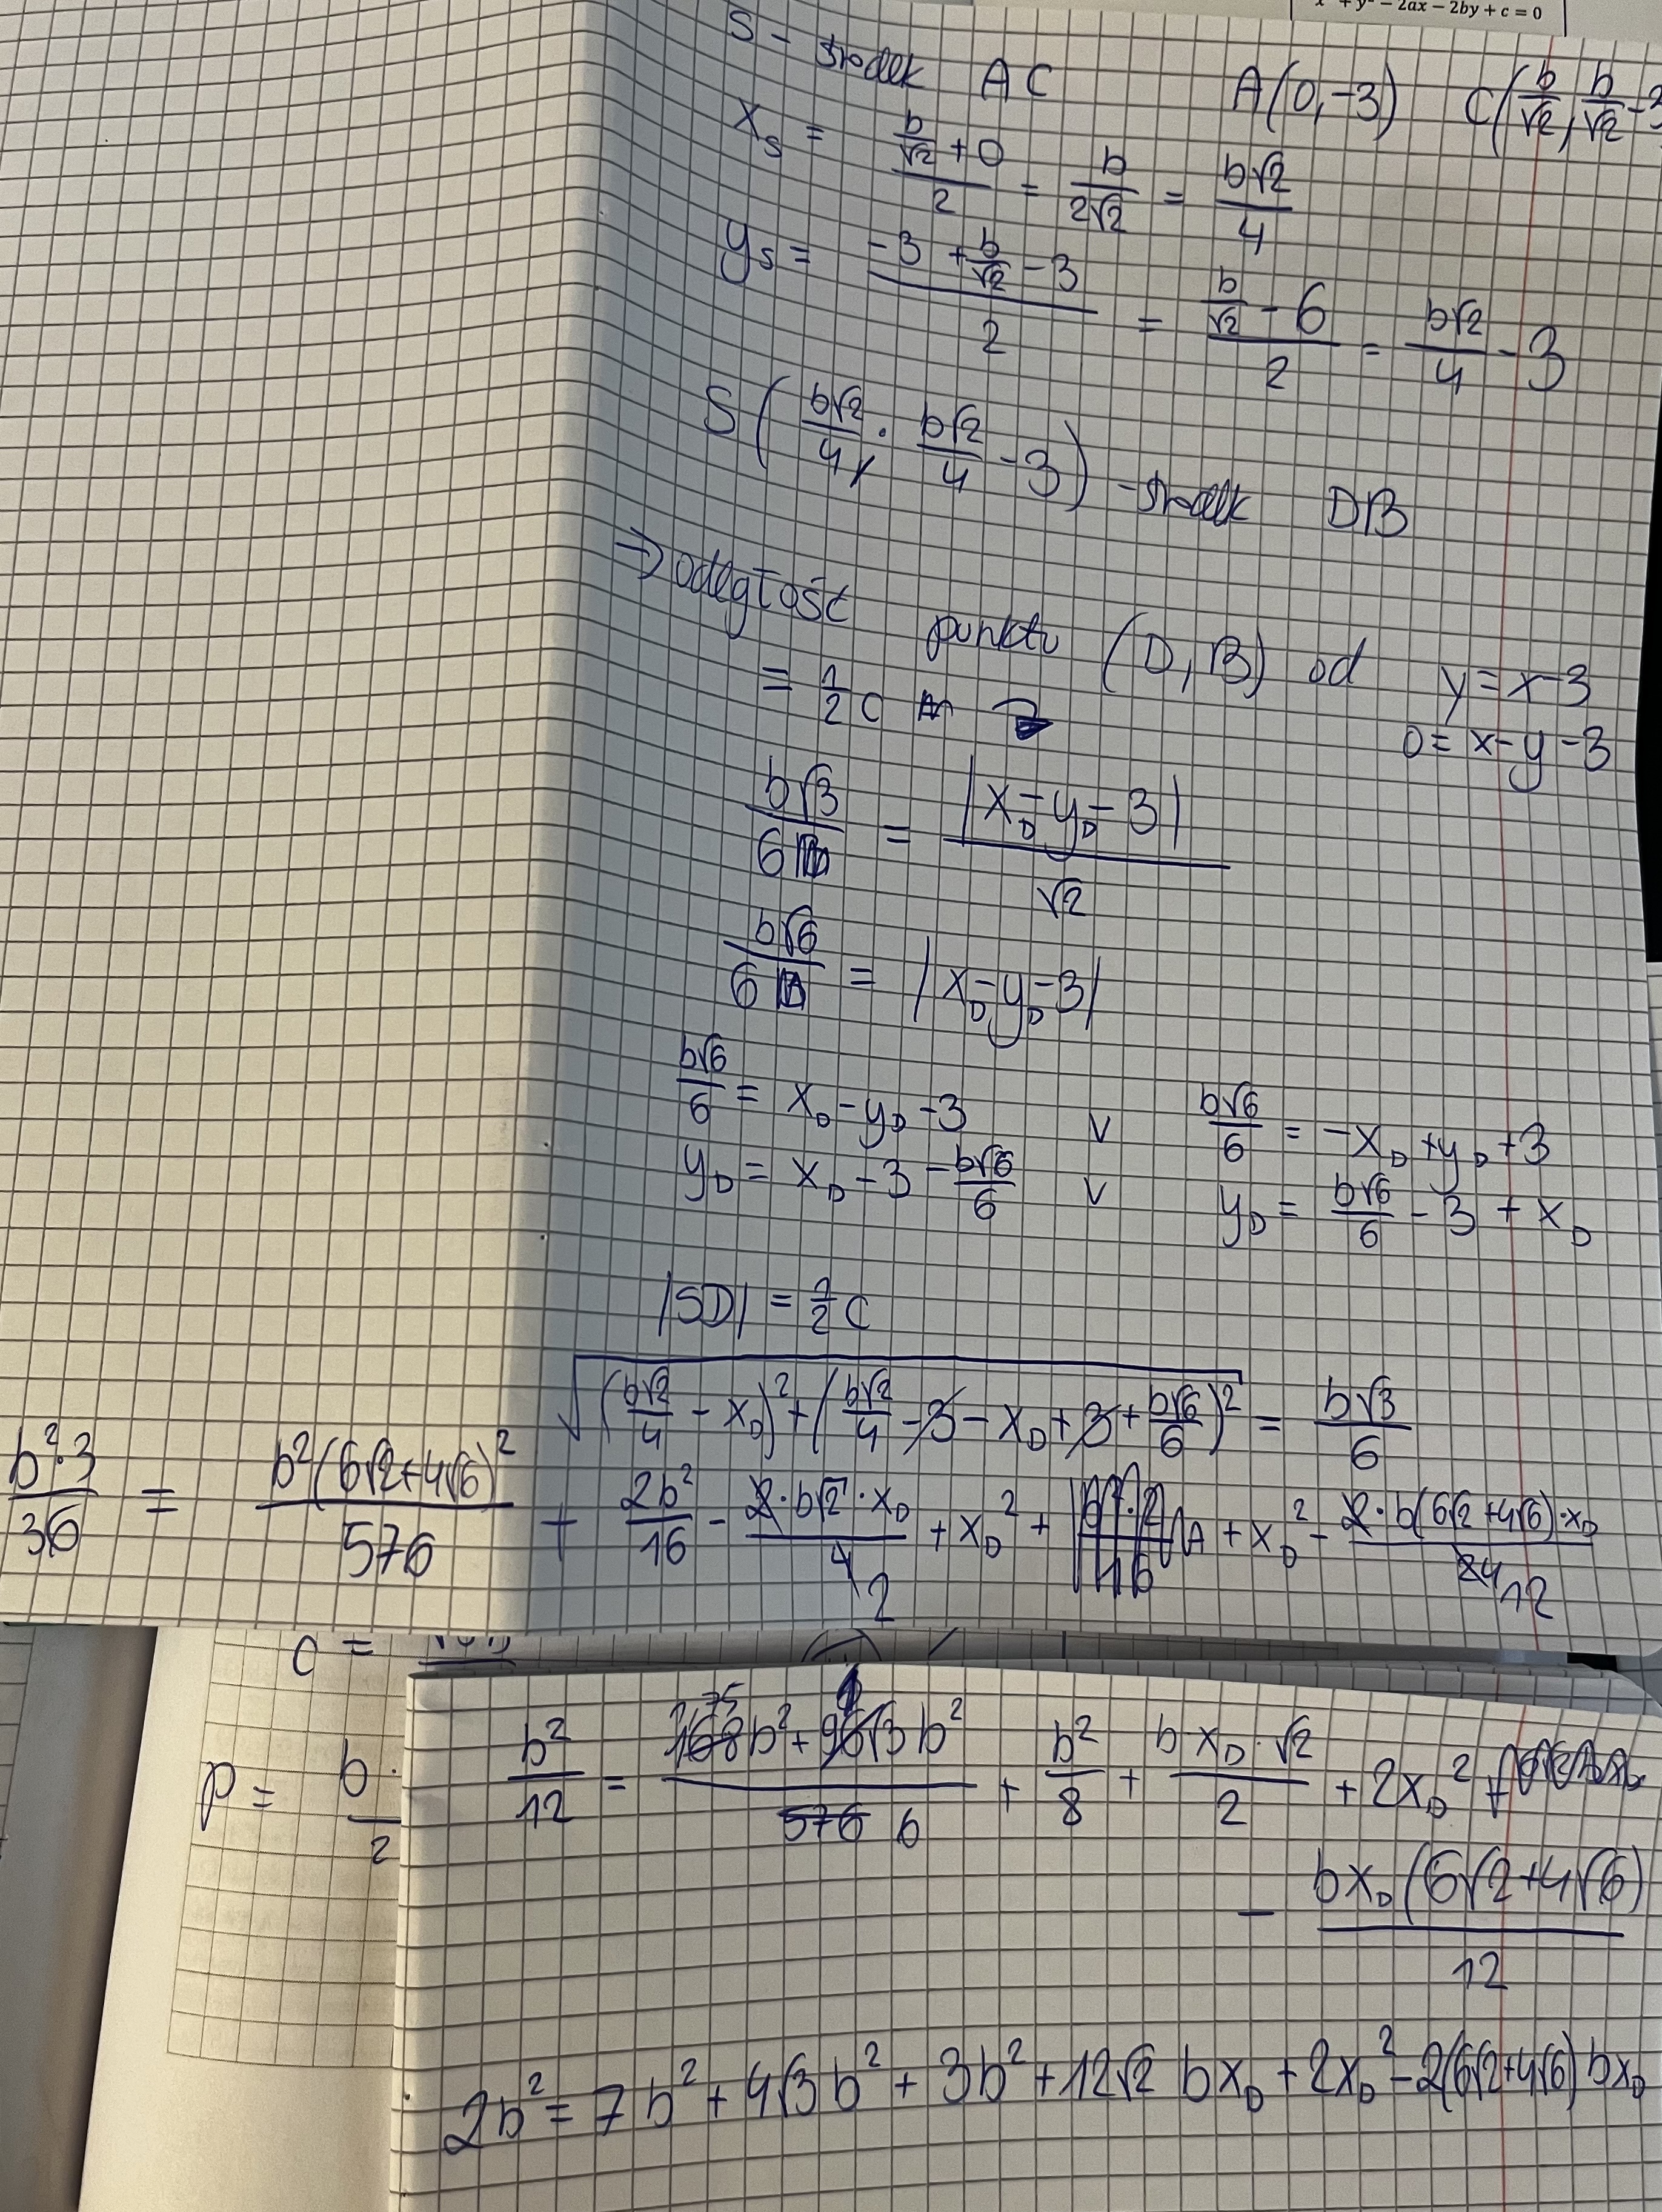 x² + y² − 2ax − 2by + c = 0
S - środek AC A(0,-3) C(b/√2, b/√2 -3
x_S = (b/√2 + 0)/2 = b/(2√2) = b√2/4
y_S = (-3 + b/√2 - 3)/2 = (b/√2 - 6)/2 = b√2/4 - 3
S(b√2/4, b√2/4 - 3) - środek DB
⇒ odległość punktu (D, B) od y = x-3
= 1/2 c 0 = x-y-3
b√3/6 = |x_D - y_D - 3|/√2
b√6/6 = |x_D - y_D - 3|
b√6/6 = x_D - y_D - 3 ∨ b√6/6 = -x_D + y_D + 3
y_D = x_D - 3 - b√6/6 ∨ y_D = b√6/6 - 3 + x_D
|SD| = 1/2 c
√((b√2/4 - x_D)² + (b√2/4 - 3 - x_D + 3 + b√6/6)²) = b√3/6
b²·3/36 = b²(6√2+4√6)²/576 + 2b²/16 - 2·b√2·x_D/4 2 + x_D² + + x_D² - 2·b(6√2+4√6)·x_D/24 12
c =
p = b·/2
b²/12 = (168 7b² + 96 4√3b²)/576 6 + b²/8 + b x_D·√2/2 + 2x_D²
- bx_D(6√2+4√6)/12
2b² = 7b² + 4√3b² + 3b² + 12√2 bx_D + 2x_D² - 2(6√2+4√6)bx_D